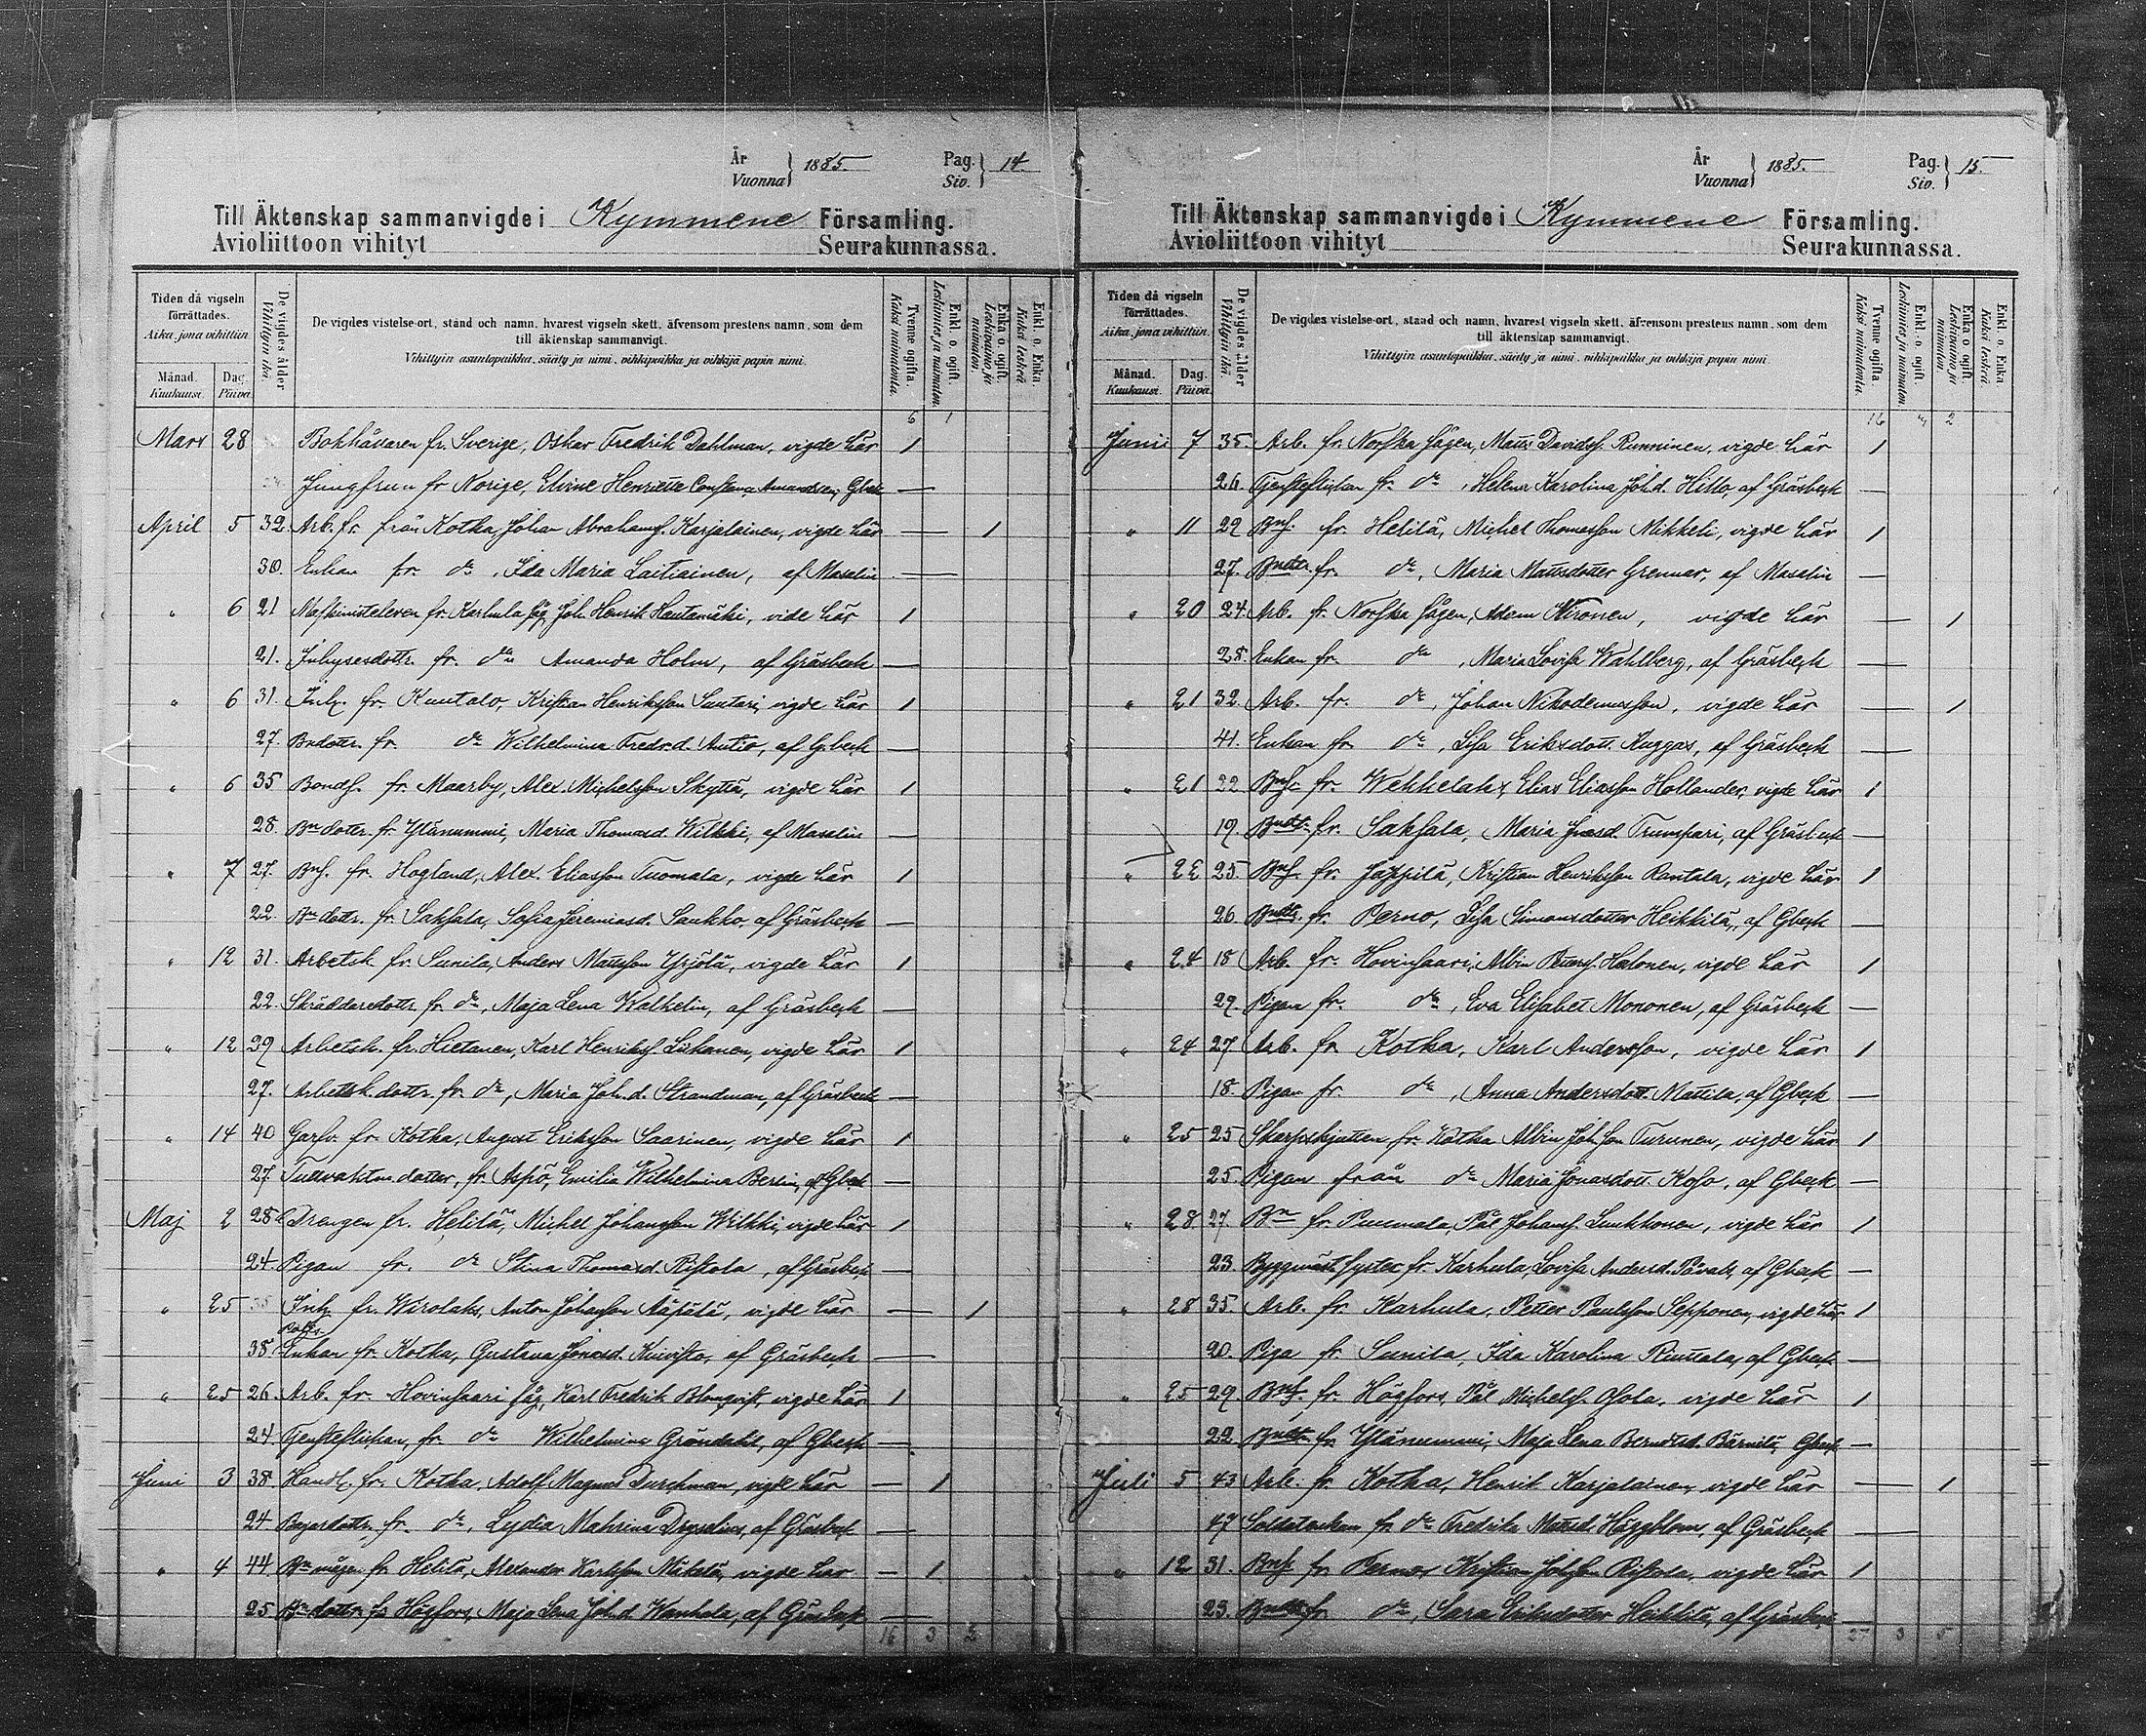 År
Vuonna } 1885.
Pag.
Siv. } 14.
Till Äktenskap sammanvigde i Kymmene Församling.
Avioliittoon vihityt Seurakunnassa.
Tiden då vigseln förrättades.
Aika, jona vihittiin.
Månad.
Kuukausi.
Dag.
Päivä.
De vigdes ålder
Vihittyin ikä.
De vigdes vistelse-ort, stånd och namn, hvarest vigseln skett, äfvensom prestens namn, som dem
till äktenskap sammanvigt.
Vihittyin asuntopaikka, sääty ja nimi, vihkipaikka ja vihkijä papin nimi.
Tvenne ogifta.
Kaksi naimatonta.
Enkl. o. ogift.
Leskimies ja naimaton.
Enka o. ogift.
Leskivaimo ja naimaton
Enkl. o. Enka.
Kaksi leskeä.
6 1
Mars 28 Bokhållaren fr. Sverige, Oskar Fredrik Dahlman, vigde här 1
Jungfrun fr Norige, Elvine Henriette Constance Amundsen, Gbeck —
April 5 32. Arb. fr. från Kotka, Johan Abrahamss. Karjalainen, vigde här — 1
30. Enkan fr. do, Ida Maria Laitiainen, af Masalin —
" 6 21 Maskinisteleven fr. Karhula såg, Joh. Henrik Hautamäki, vide här 1
21. Inhysesdottr. fr. do Amanda Holm, af Gräsbeck —
" 6 31. Inh. fr. Kuutalo, Kristian Henriksson Suutari, vigde här 1
27. Bndottr. fr. do Wilhelmina Fredr.d. Antio, af G.beck —
" 6 35 Bonds. fr. Maarby, Alex. Michelsson Skyttä, vigde här 1
28. Bndotter. fr. Ylänummi, Maria Thomasd. Wilkki, af Masalin —
" 7 27. Bns. fr. Hogland, Alex. Eliasson Tuomala, vigde här 1
22. Bn dottr. fr. Saksala, Sofia Jeremiasd. Saukko, af Gräsbeck —
" 12 31. Arbetsk. fr. Sunila, Anders Mattsson Yrjölä, vigde här 1
22. Skräddaredottr. fr. do, Maja Lena Walhelm, af Gräsbeck —
" 12 29 Arbetsk. fr. Hietanen, Karl Henrikss. Liikanen, vigde här 1
27. Arbetsk. dottr. fr. do, Maria Joh. d. Strandman, af Gräsbeck —
" 14 40 Garfv. fr. Kotka, August Eriksson Saarinen, vigde här 1
27. Tullvaktm. dotter, fr. Aspö, Emilia Wilhelmina Berlin, af Gbeck —
Maj 2 28 Drengen fr. Heliltä, Michel Johansson Wilkki, vigde här 1
24. Pigan fr. do Stina Thomasd. Ristola, af Gräsbeck —
" 25 35 Inh. fr. Wirolaks, Anton Johansson Ääpälä, vigde här — 1
38. Enkan fr. Kotka, Gustava Jonasd. Kuivisto, af Gräsbeck —
" 25 26. Arb. fr. Hovinsaari såg, Karl Fredrik Blomqvist, vigde här 1
24. Tjensteflickan, fr. do Wilhelmina Gröndahl, af Gbeck —
Juni 3 38. Handl. fr. Kotka, Adolf Magnus Durchman, vigde här — 1
24 dottr. fr. do, Lydia Mahrina Dryselius, af Gräsbeck —
" 4 44 Bn mågen fr. Helilä, Alexander Karlsson Mäkelä, vigde här — 1
25 Bn dottr. fr. Högfors, Maja Lena Joh.d Wanhala, af Gräsbeck —
16 3 2
År
Vuonna } 1885.
Pag.
Siv. } 15.
Till Äktenskap sammanvigde i Kymmene Församling.
Avioliittoon vihityt Seurakunnassa.
Tiden då vigseln förrättades.
Aika, jona vihittiin.
Månad.
Kuukausi.
Dag.
Päivä.
De vigdes ålder
Vihittyin ikä.
De vigdes vistelse-ort, stånd och namn, hvarest vigseln skett, äfvensom prestens namn, som dem
till äktenskap sammanvigt.
Vihittyin asuntopaikka, sääty ja nimi, vihkipaikka ja vihkijä papin nimi.
Tvenne ogifta.
Kaksi naimatonta.
Enkl. o. ogift.
Leskimies ja naimaton.
Enka o. ogift.
Leskivaimo ja naimaton
Enkl. o. Enka
Kaksi leskeä.
16 " 2
Junii 7 35. Arb. fr. Norska sågen, Matts Davidss. Runninen, vigde här 1
26. Tjensteflickan fr. do, Helena Karolina Joh.d. Hillo, af Gräsbeck —
" 11 22 Bns. fr. Helilä, Michel Thomasson Mikkeli, vigde här 1
27. Bndttr. fr. do, Maria Mattsdotter Grennar, af Masalin —
" 20 24. Arb. fr. Norska sågen, Adam Wironen, vigde här — 1
28. Enkan fr. do, Maria Lovisa Wahlberg, af Gräsbeck —
" 21 32. Arb. fr. do, Johan Nikodemusson, vigde här — 1
41. Enkan fr. do, Lisa Eriksdott. Kuggas, af Gräsbeck —
" 21 22 Bns. fr. Wehkelaks, Elias Eliasson Hollander, vigde här 1
19. Bndtr. fr. Saksala, Maria Jonasd. Trumpari, af Gräsbeck —
" 22 25. Bns. fr. Jäppilä, Kristian Henriksson Rantala, vigde här 1
26. Bndtr. fr. Perno, Lisa Simonsdotter Heikkilä, af Gbeck —
" 24 18 Arb. fr. Hovinsaari, Albin Petterss. Halonen, vigde här 1
29. Pigan fr. do, Eva Elisabet Mononen, af Gräsbeck —
" 24 27 Arb. fr. Kotka, Karl Andersson, vigde här 1
18. Pigan fr. do, Anna Andersdott. Mattila, af Gbeck —
" 25 25 Skarpskytten fr. Kotka Albin Joh.son Turunen, vigde här 1
25. Pigan från do Maria Jonasdott. Koso, af Gbeck —
" 28 27. Bn fr. Puumala, Pål Johanss. Luukkonen, vigde här 1
23. Byggmäst. syster fr. Karhula, Lovisa Andersd. Pävak, af Gbeck —
" 28 35. Arb. fr. Karhula, Petter Paulsson Sepponen, vigde här 1
20. Piga fr. Sunila, Ida Karolina Rimala, af Gbeck —
" 25 29. Bns. fr. Högfors, Pål Michelss. Osola, vigde här 1
22. Bndtr. fr. Ylänummi, Maja Lena Berndtsd. Bärnilä, Gbeck —
Juli 5 43 Arb. fr. Kotka, Henrik Karjalainen, vigde här — 1
47 Soldatenkan fr. do Fredrika Mattsd. Häggblom, af Gräsbeck —
" 12 31. Bns fr. Pernos Kristian Johsson Ristola, vigde här 1
23. Bndtr fr. do, Sara Eriksdotter Heikkilä, af Gräsbeck —
27 3 5